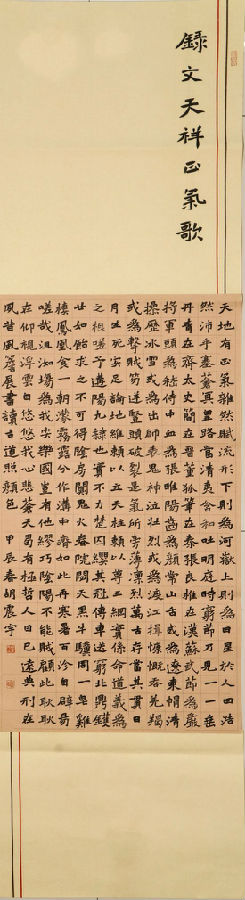 錄文天祥正氣歌
天地有正氣雜然賦流形下則為河嶽上則為日星於人曰浩
然沛乎塞蒼冥皇路當清夷含和吐明庭時窮節乃見一一垂
丹青在齊太史簡在晉董狐筆在秦張良椎在漢蘇武節為嚴
將軍頭為嵇侍中血為張睢陽齒為顏常山舌或為遼東帽清
操厲冰雪或為出師表鬼神泣壯烈或為渡江楫慷慨吞羌羯
或為擊賊笏逆豎頭破裂是氣所旁薄凜烈萬古存當其貫日
月生死安足論地維賴以立天柱賴以尊三綱實係命道義為
之根嗟予遘陽九隸也實不力楚囚纓其冠傳車送窮北鼎鑊
甘如飴求之不可得陰房闃鬼火春院閟天黑牛驥同一皂雞
棲鳳凰食一朝濛霧露分作溝中瘠如此再寒暑百沴自辟易
嗟哉沮洳場為我安樂國豈有他繆巧陰陽不能賊顧此耿耿
在仰視浮雲白悠悠我心悲蒼天曷有極哲人日已遠典刑在
夙昔風簷展書讀古道照顏色 甲辰春胡震宇